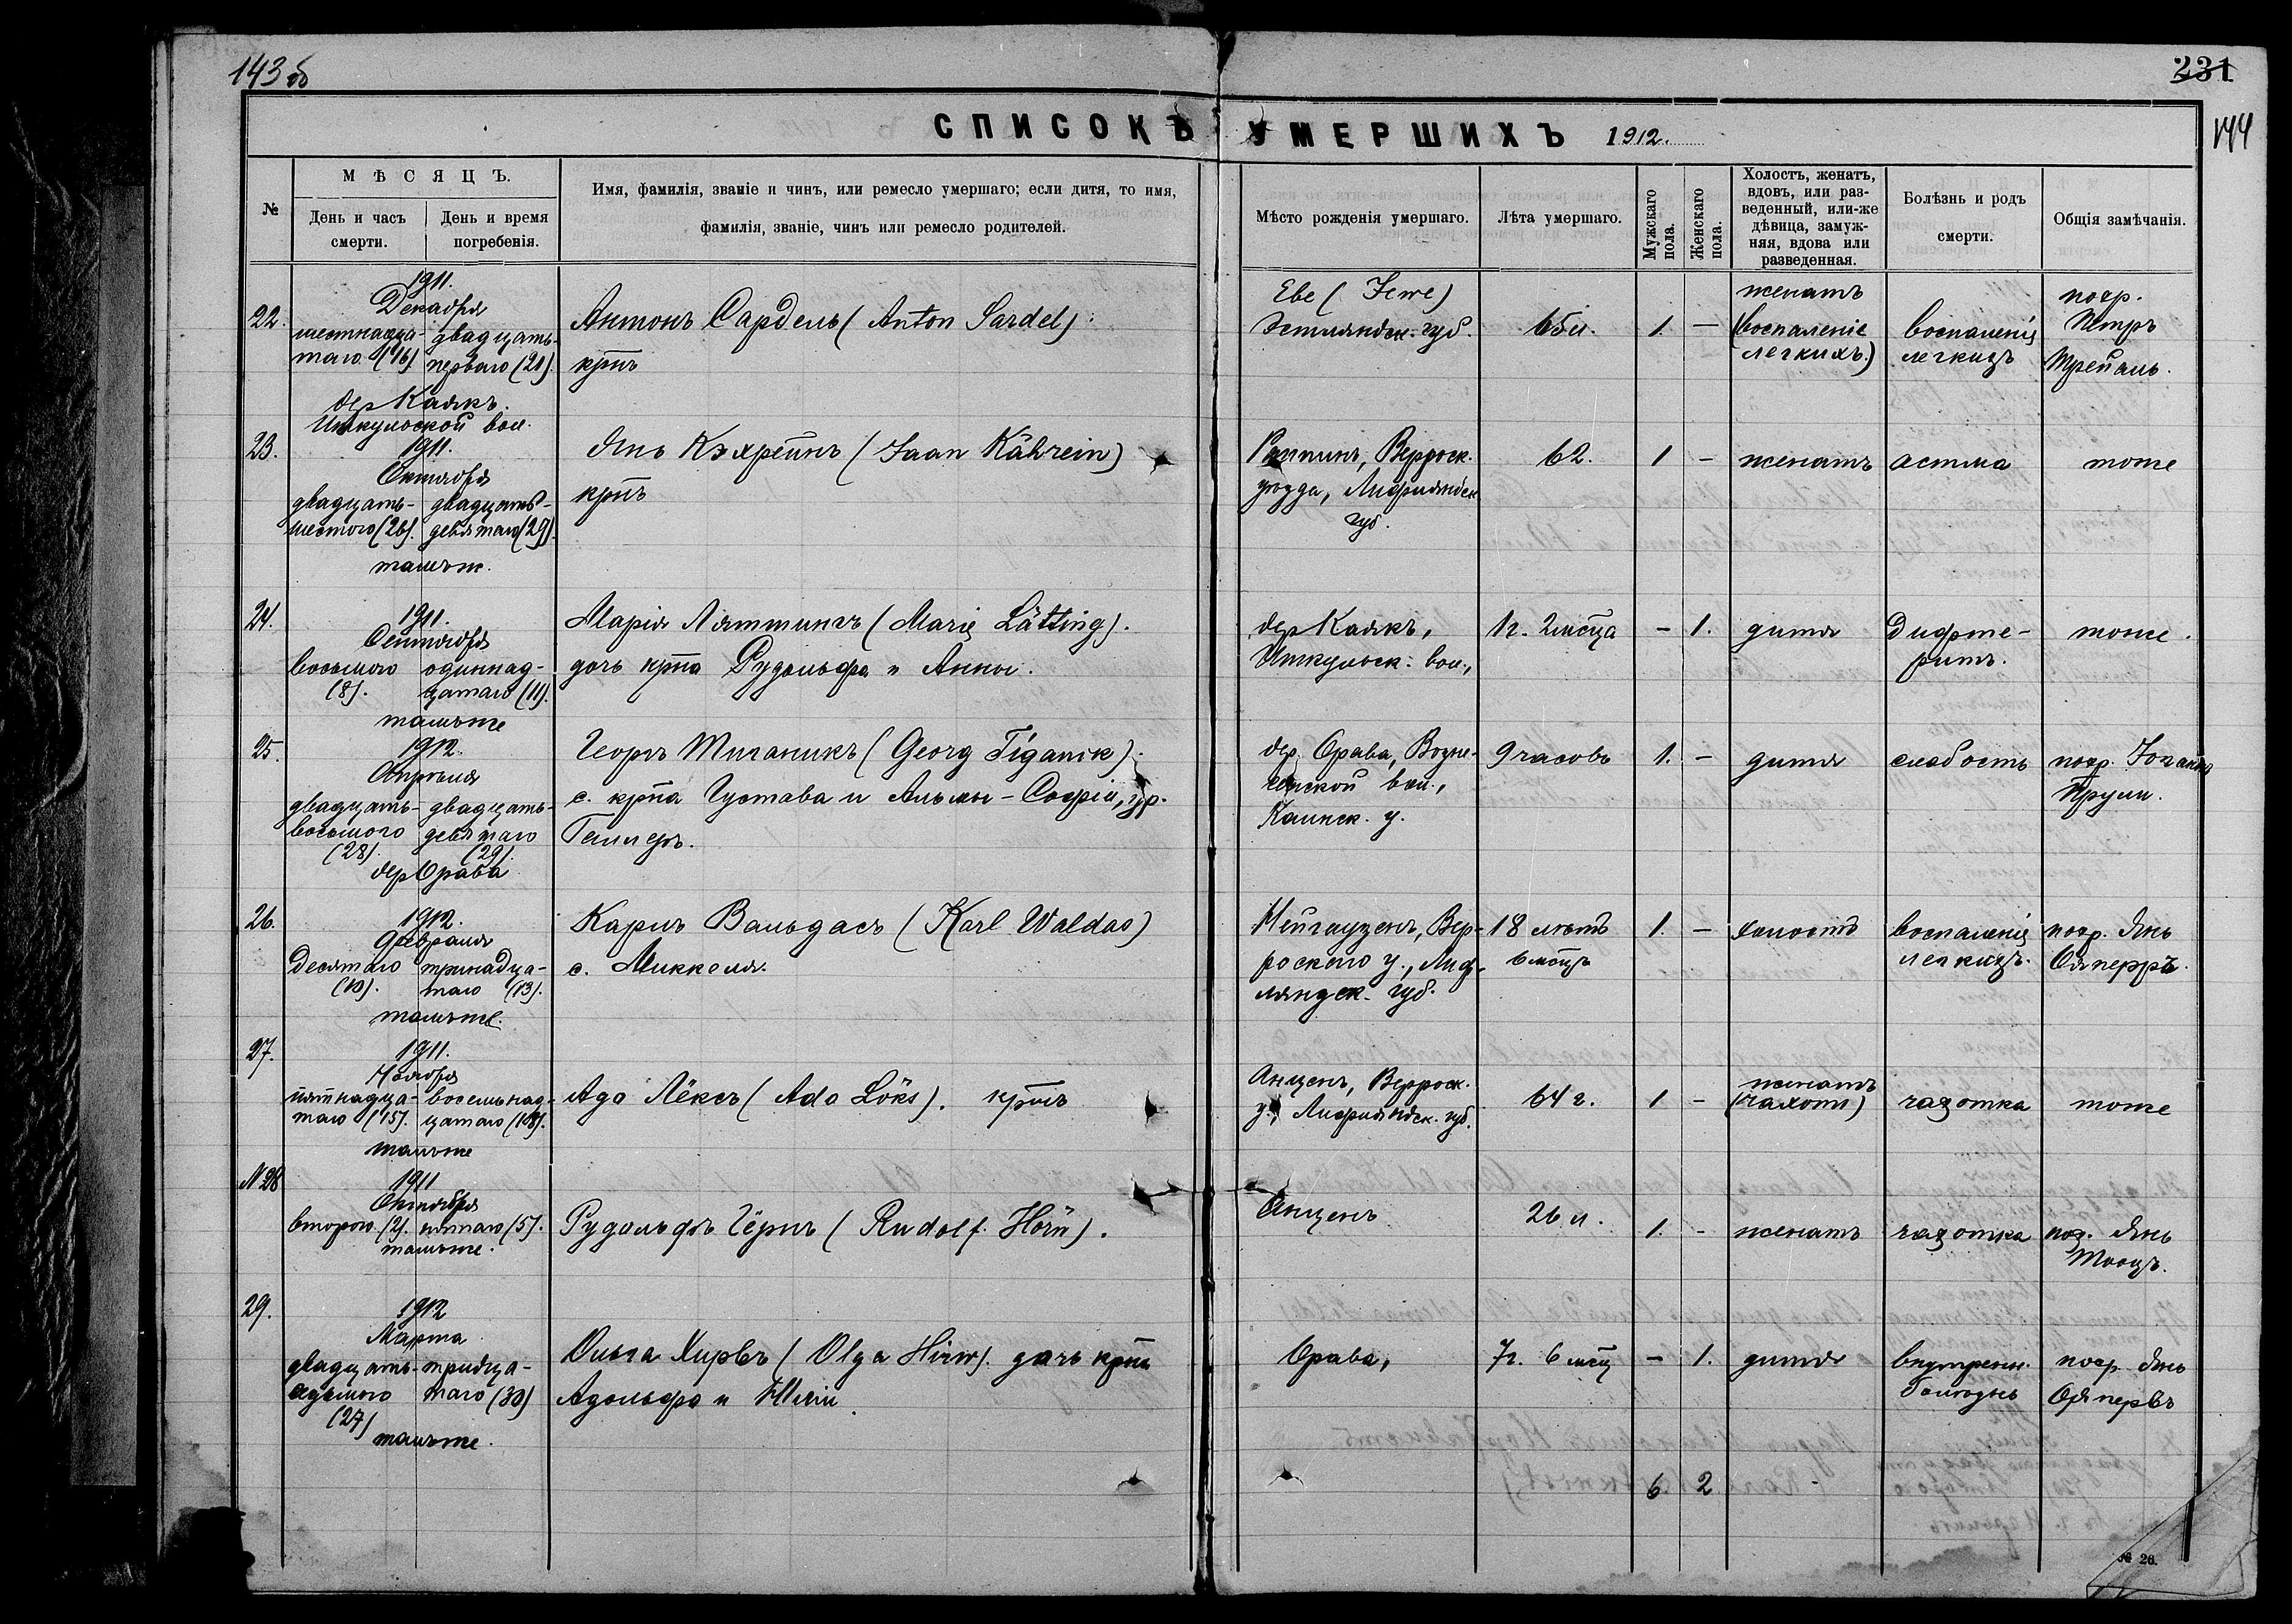 143об
231
144
СПИСОКЪ УМЕРШИХЪ 1912.
№
МѢСЯЦЪ.
День и часъ смерти.
День и время погребенія.
Имя, фамилія, званіе и чинъ, или ремесло умершаго; если дитя, то имя,
фамилія, званіе, чинъ или ремесло родителей.
Мѣсто рожденія умершаго.
Лѣта умершаго.
Мужскаго пола.
Женскаго пола.
Холостъ, женатъ,
вдовъ, или раз-
веденный, или-же
дѣвица, замуж-
няя, вдова или
разведенная.
Болѣзнь и родъ
смерти.
Общія замѣчанія.
22.
1911.
Декабря
шестнадца-
таго (16).
двадцать-
перваго (21).
дер Каякъ.
Иткульской вол.
Антонъ Сардель (Anton Sardel)
крнъ
Еве (Jewe)
Эстляндск. губ.
65 л.
1. –
женатъ
(воспаленіе
легкихъ.)
воспаленіе
легкихъ
похр.
Петръ
Трейаль.
23.
1911.
Октября
двадцать-
шестого (26).
двадцать-
девятаго (29).
тамъж.
Янъ Кэхрейнъ (Jaan Kährein)
крнъ
Раппинъ, Верроск.
уѣзда, Лифляндск
губ.
62.
1 –
женатъ
астма
тоже
24.
1911.
Сентября
восьмого
(8).
одиннад-
цатаго (11).
тамъже
Марія Ляттингъ (Marie Lätting).
дочь крна Рудольфа и Анны.
дер Каякъ,
Иткульск. вол.,
1 г. 2 мсца
– 1.
дитя
дифте-
ритъ.
тоже.
25.
1912.
Апрѣля
двадцать-
восьмого
(28).
двадцать-
девятаго
(29).
дер Орава
Георгъ Тиганикъ (Georg Tiganik).
с. крна Густава и Альмы-Софіи, ур.
дер. Орава, Возне-
сенской вол.,
Каинск. у.
9 часовъ
1. –
дитя
слабость
похр. Іоганъ
26.
1912.
Февраля
десятаго
(10).
тринадца-
таго (13).
тамъже.
Карлъ Вальдасъ (Karl Waldas)
с. Миккеля.
Нейгаузенъ, Вер-
роскаго у., Лиф-
ляндск. губ.
18 лѣтъ
6 мсцъ
1. –
холостъ
воспаленіе
легкихъ.
похр. Янъ
27.
1911.
Ноября
пятнадца-
таго (15).
восемнад-
цатаго (18).
тамъже
Адо Лёксъ (Ado Löks). крнъ
Анценъ, Верроск.
у., Лифляндск. губ.
64 г.
1 –
женатъ
чахотка
тоже
№ 28
1911
Октября
второго (2).
пятаго (5).
тамъже.
Рудольфъ Гёрнъ (Rudolf Hörn).
Анценъ
26 л.
1. –
женатъ
чахотка
похр. Янъ
29.
1912
Марта
двадцать-
седьмого
(27)
тридца-
таго (30)
тамъже.
Ольга Хирвъ (Olga Hirw). дочь крна
Адольфа и Юліи
Орава,
7 г. 6 мсц
– 1.
дитя
внутренн.
болѣзнь
похр. Янъ
6 2
№ 26.